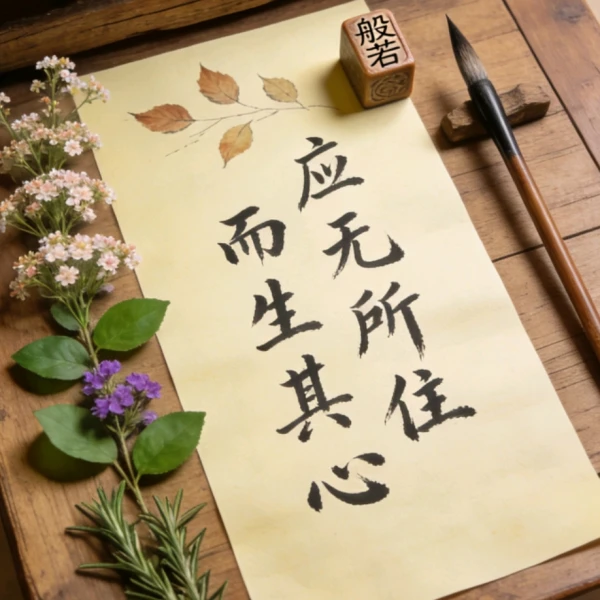 般若
应无所住
而生其心